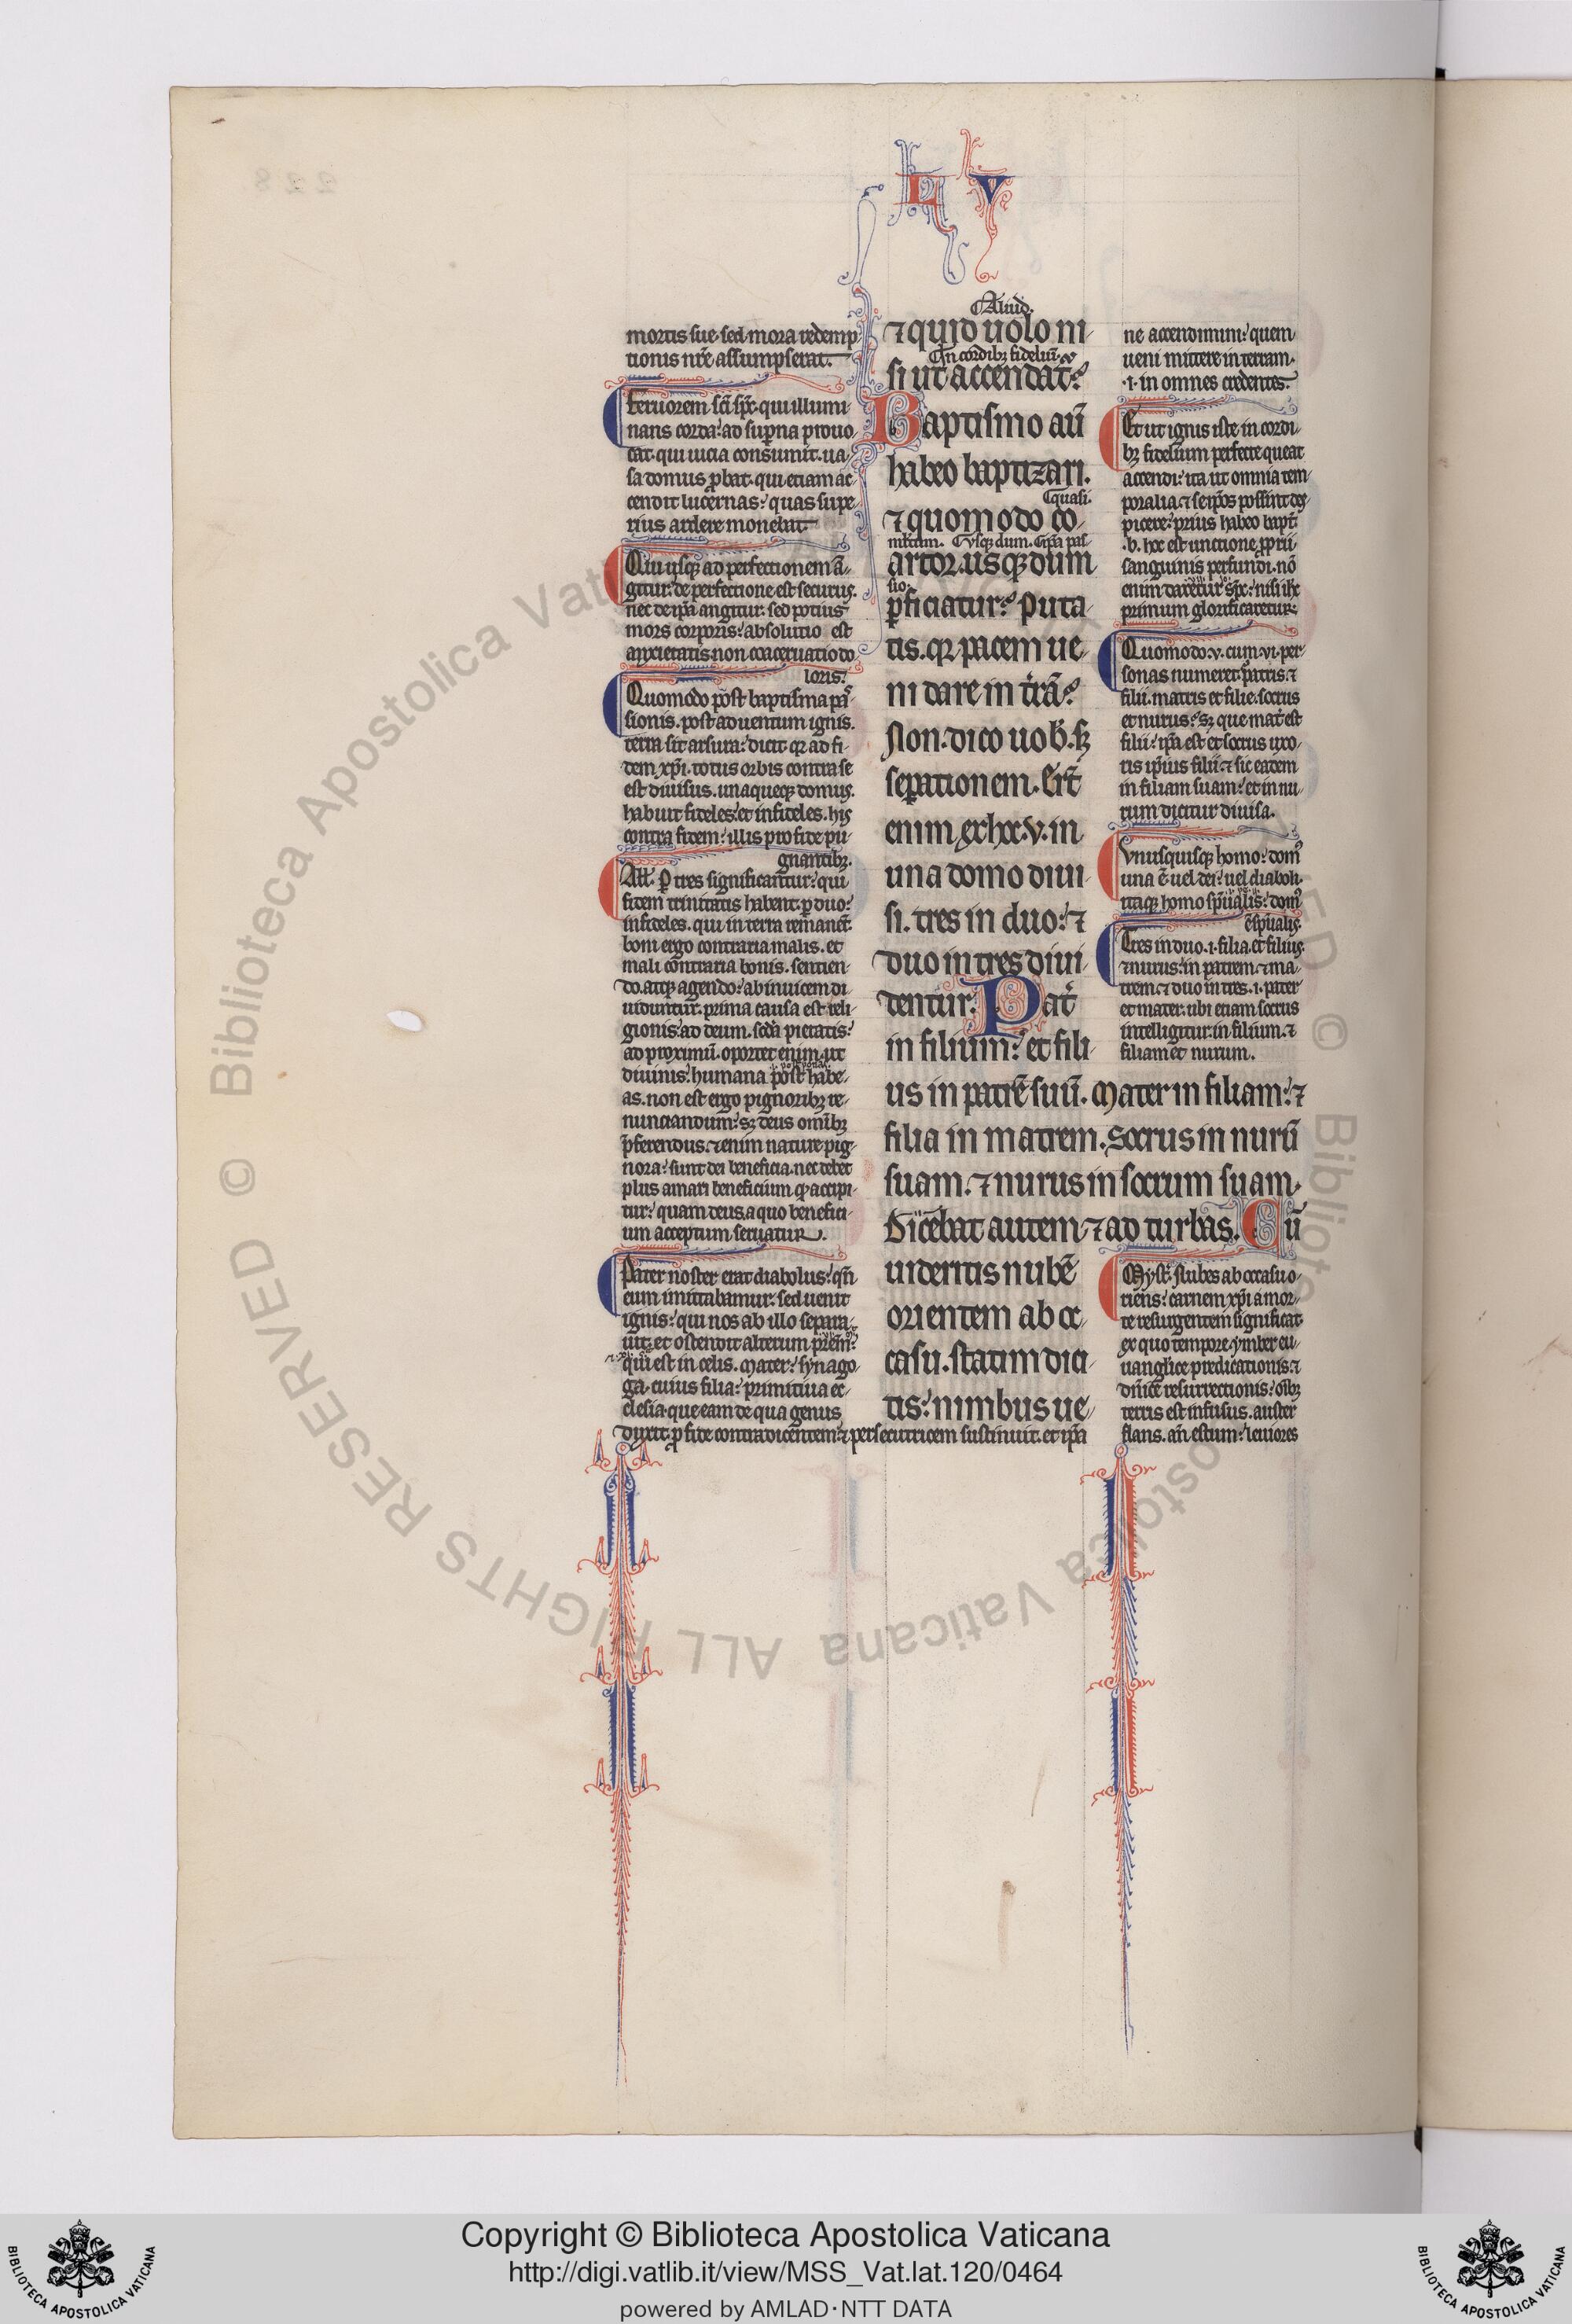 L V
mortis sue. sed mora redemp
tionis nr̄e assumpserat.
feruorem sc̄i sp̄c. qui illumi
nans corda: ad sup̄na prouo
cat. qui uicia consumit. ua
sa domus ꝓbat. qui etiam ac
cendit lucernas: quas supe
rius ardere monebat
Qui usq; ad perfectionem ā
gitur: de perfectione est securus.
nec de ip̄a angitur. sed potius
mors corporis: absolutio est
anxietatis. non coaceruatio do
loris.
Quomodo post baptisma pas
sionis. post aduentum ignis.
terra sit arsura: dicit qꝛ ad fi
dem xp̄i. totus orbis contra se
est diuisus. unaqueq; domus.
habuit fideles: et infideles. his
contra fidem: illis pro fide pu
gnantibꝫ.
All'. ꝑ tres significantur: qui
fidem trinitatis habent. ꝑ duo:
infideles. qui in terra remanēt.
boni ergo contraria malis. et
mali contraria bonis. sentien
do. atq; agendo: abinuicem di
uiduntur. prima causa est reli
gionis: ad deum. scd̄a pietatis:
ad proximū. oportet enim. ut
diuinis: humana post habe
as. non est ergo pignoribꝫ re
nunciandum: sꝫ deus om̄ibꝫ
p̄ferendus. ⁊ enim nature pig
nora: sunt dei beneficia. nec debet
plus amari beneficium qđ accipi
tur: quam deus a quo benefici
um acceptum seruatur.
Pater noster erat diabolus: qn̄
eum imitabamur: sed uenit
ignis: qui nos ab illo separa
uit. et ostendit alterum pr̄em:
qui est in celis. Mater: synago
ga. cuius filia: primitiua ec
clesia. que eam de qua genus
duxit. ꝓ fide contradicentem: ⁊ persecutricem sustinuit. et ip̄a
Aliud.
⁊ quid uolo ni
In cordibꝫ fideliū.
si ut accendat̄?
Baptismo aū
habeo baptizari.
quasi.
⁊ quomodo co
Usq; dum.
artor. usq; dum
sio.
ꝑficiatur? Puta
tis. qꝛ pacem ue
ni dare in t̄rā?
Non. dico uob̄. sꝫ
sepationem. Er̄t
enim ex hoc. v. in
una domo diui
si. tres in duo: ⁊
duo in tres diui
dentur. Pat̄
in filium: et fili
us in patrē suū. Mater in filiam: ⁊
filia in matrem. Socrus in nurū
suam. ⁊ nurus in socrum suam.
Dicebat autem ⁊ ad turbas. Cū
uideritis nubē
orientem ab oc
casu. statim dici
tis: nimbus ue
ne accendimini: quem
ueni mittere in terram.
.i. in omnes credentes.
Et ut ignis iste in cordi
bꝫ fidelium perfecte queat
accendi: ita ut omnia tem
poralia
picere: prius habeo bapt̄.
.b. hoc est unctione ꝓprii
sanguinis perfundi. nō
enim daretur sp̄c: nisi ih̄c
primum glorificaretur.
Quomodo. v. cum. vi. per
sonas numeret. patris. ⁊
filii. matris et filie. socrus
et nurus: sꝫ que mat̄ est
filii: ip̄a est et socrus uxo
ris ip̄ius filii. ⁊ sic eadem
in filiam suam: et in nu
rum dicitur diuisa.
Vnusquisq; homo: dom'
una ē. uel dei: uel diaboli.
itaq; homo sp̄ualis: dom'
ē sp̄ualis.
Tres in duo. i. filia. et filius.
⁊ nurus: in patrem. ⁊ ma
trem. ⁊ duo in tres. i. pater
et mater. ubi etiam socrus
intelligitur: in filium. ⁊
filiam et nurum.
Myst̄. Nubes ab occasu o
riens: carnem xp̄i a mor
te resurgentem significat.
ex quo tempore. ymber eu
uangl'ice predicationis. ⁊
dn̄ice resurrectionis: oībꝫ
terris est infusus. auster
flans. an̄ estum: leuiores
Copyright © Biblioteca Apostolica Vaticana
http://digi.vatlib.it/view/MSS_Vat.lat.120/0464
powered by AMLAD·NTT DATA
BIBLIOTECA APOSTOLICA VATICANA
BIBLIOTECA APOSTOLICA VATICANA
© Biblioteca Apostolica Vaticana ALL RIGHTS RESERVED